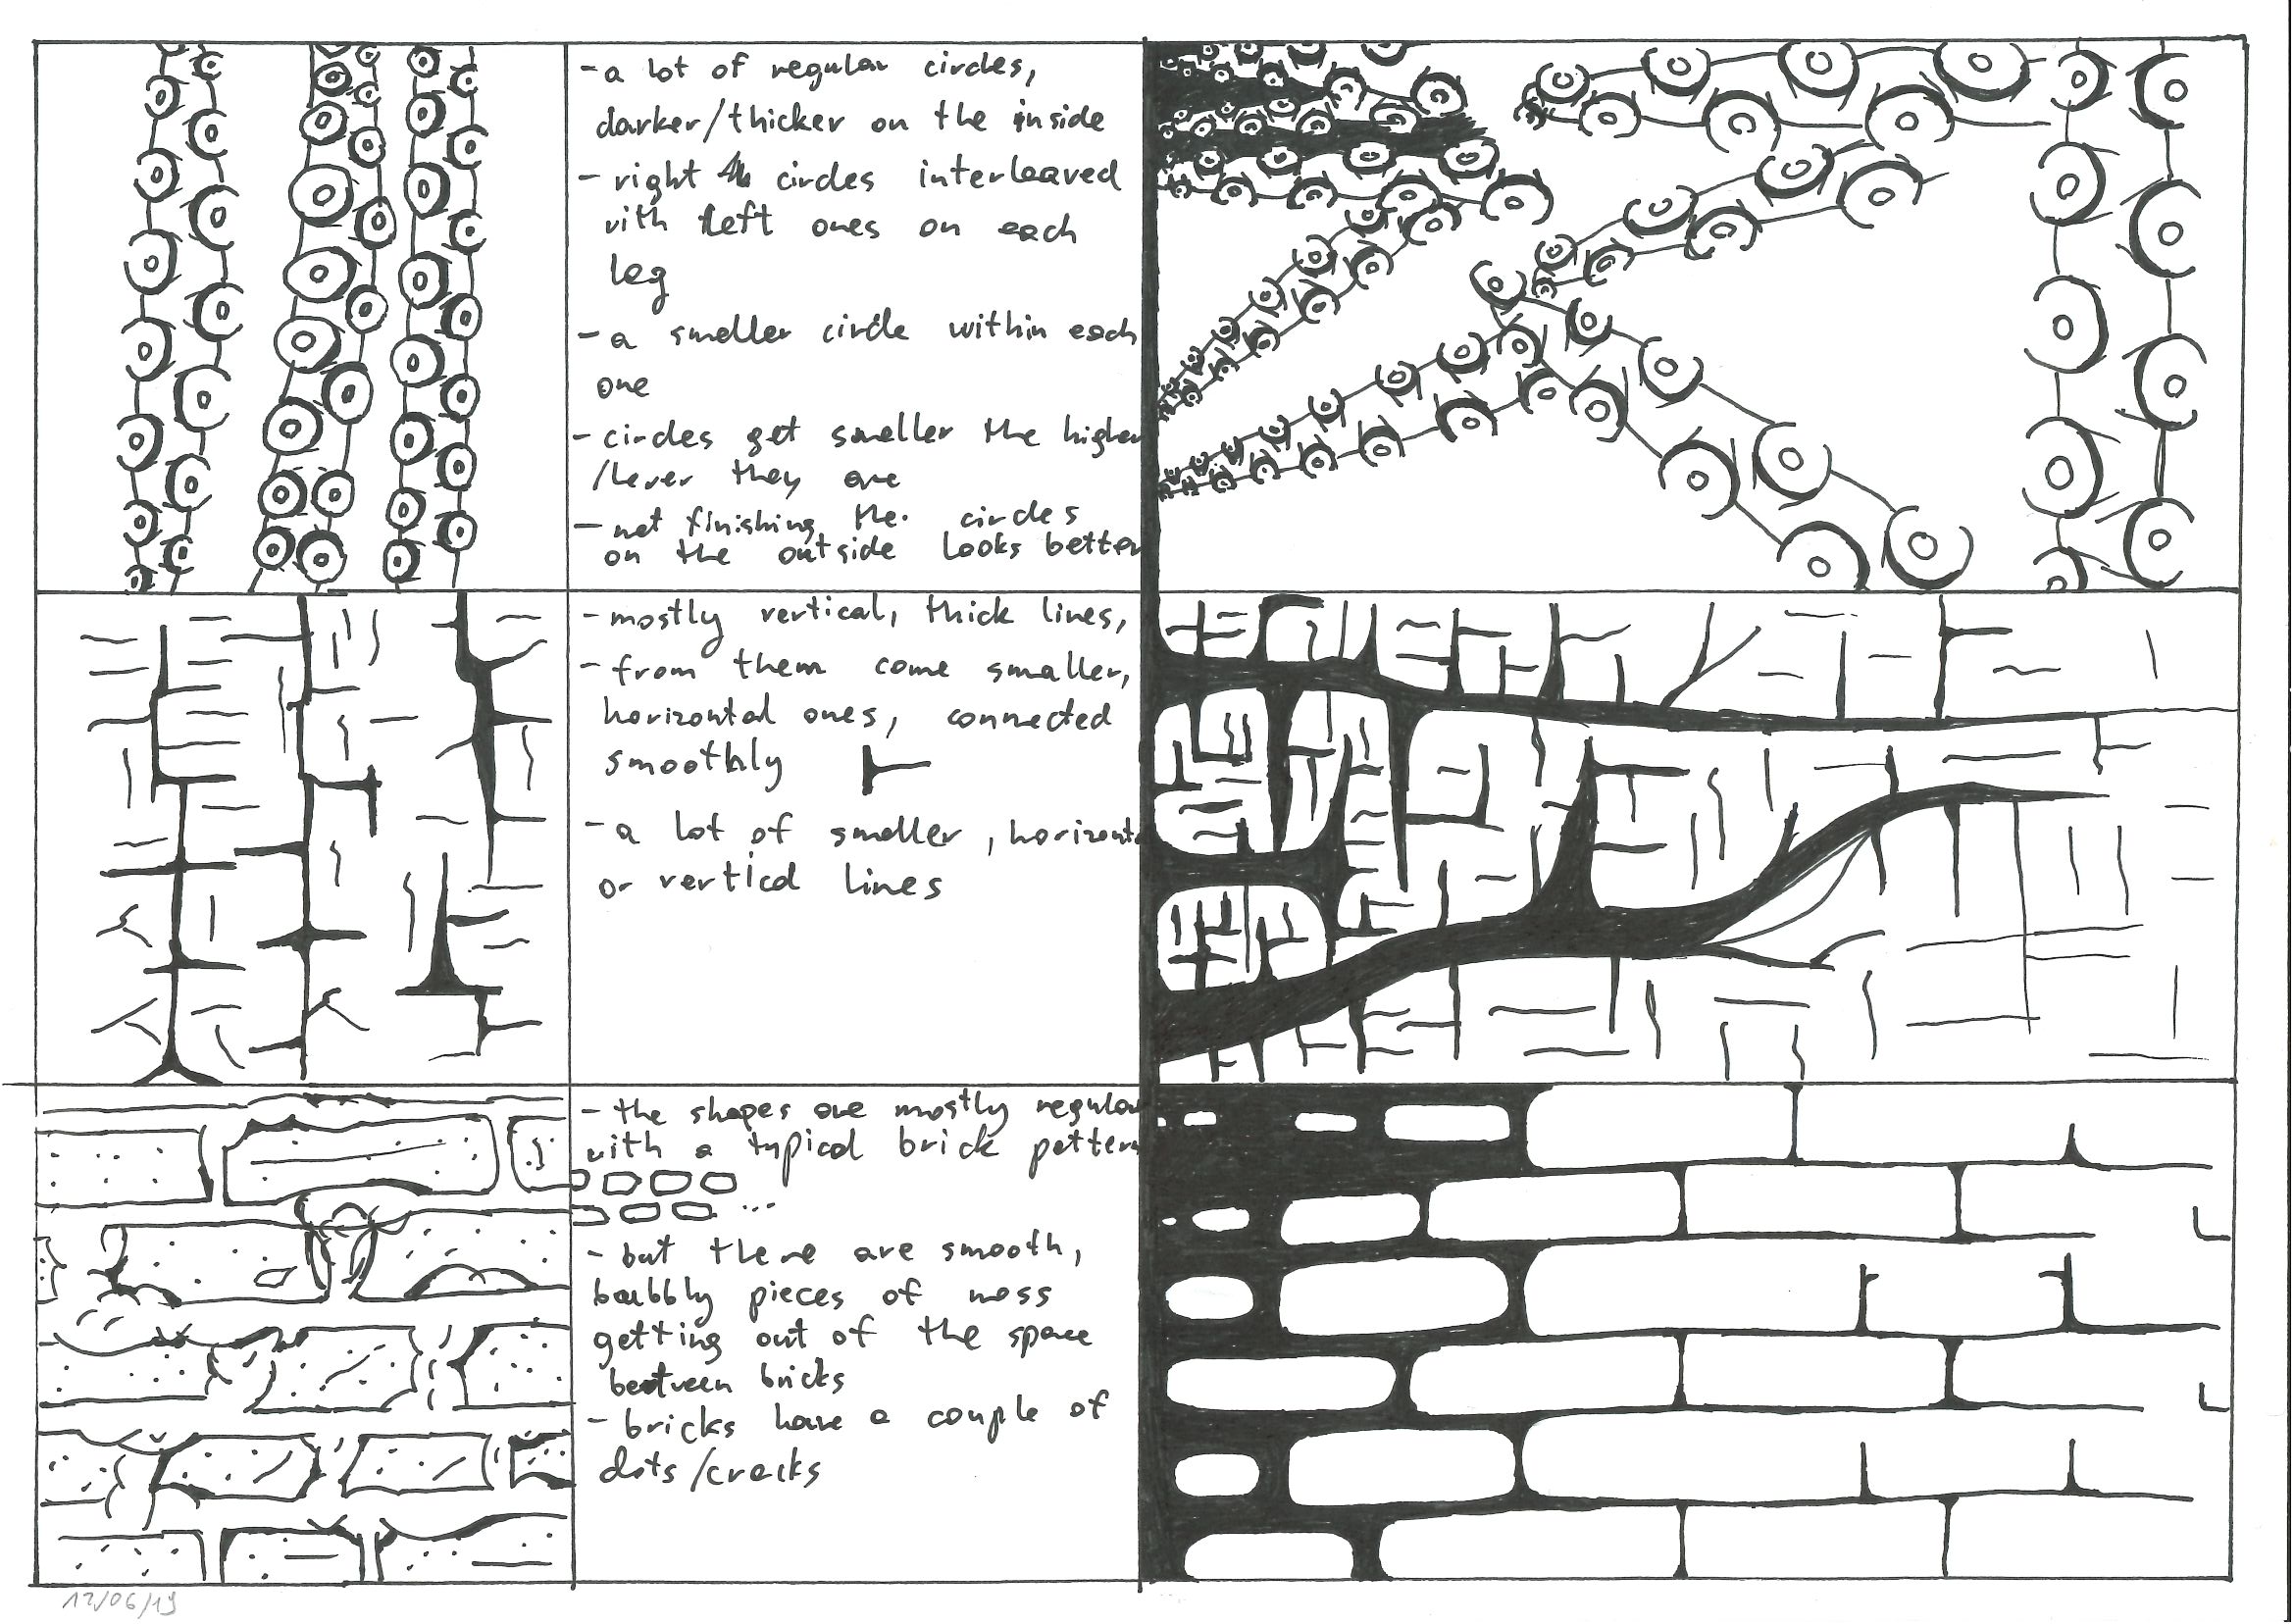 - a lot of regular circles,
darker/thicker on the inside
- right circles interleaved
with left ones on each
leg
- a smaller circle within each
one
- circles get smaller the higher
/lever they are
- not finishing the circles
on the outside looks better
- mostly vertical, thick lines,
- from them come smaller,
horizontal ones, connected
smoothly
- a lot of smaller, horizonta
or vertical lines
- the shapes are mostly regular
with a typical brick pattern
...
- but there are smooth,
bubbly pieces of moss
getting out of the space
between bricks
- bricks have a couple of
dots/cracks
12/06/19